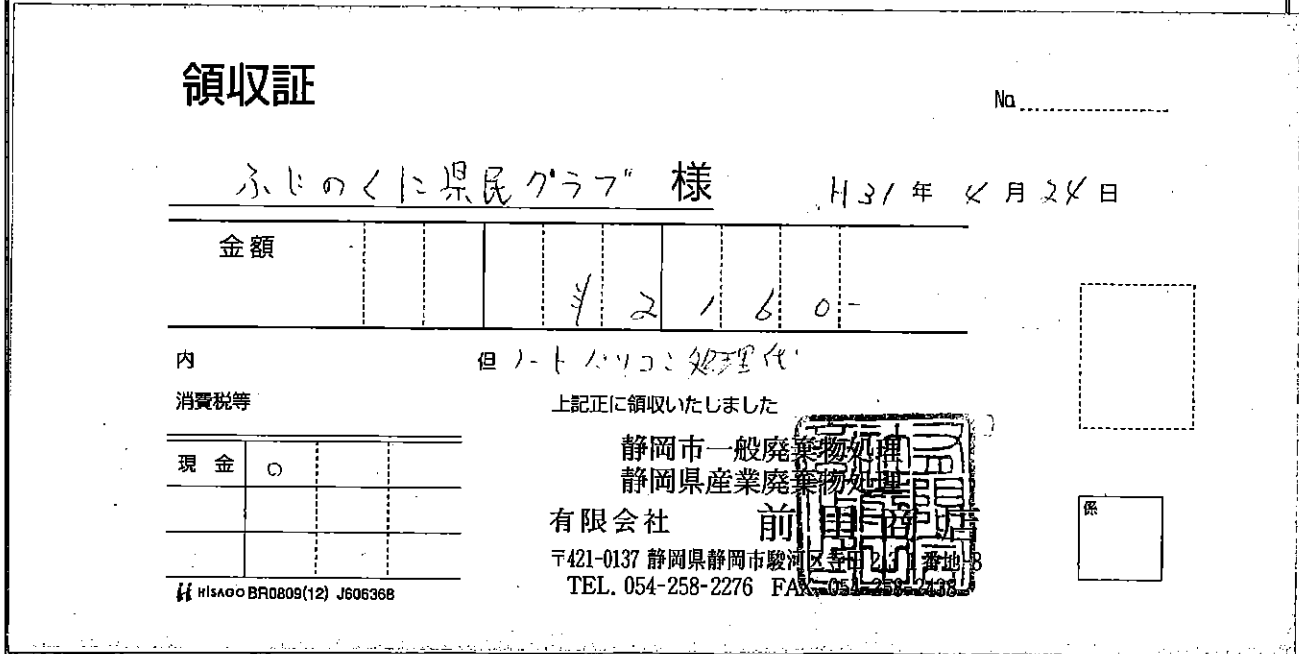 領収証
No.
ふじのくに県民クラブ 様 H31年 4月24日
金額 ¥2160-
内 但 ノートパソコン処理代
消費税等 上記正に領収いたしました
静岡市一般廃棄物処理
静岡県産業廃棄物処理
現金 ○
有限会社 前田商店
係
〒421-0137 静岡県静岡市駿河区寺田231番地-3
TEL. 054-258-2276 FAX 054-258-2438
HISAGO BR0809(12) J606368